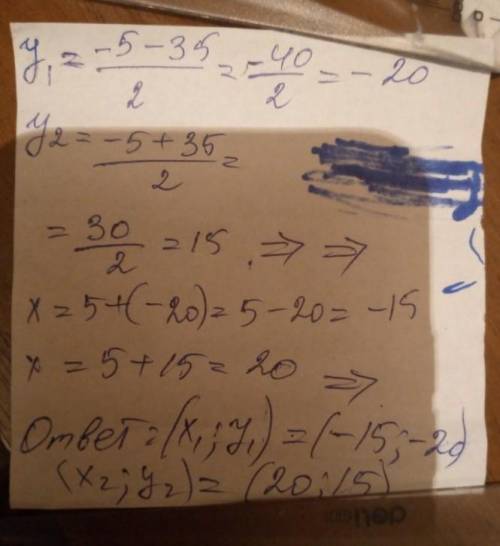 y₁ = (-5 - 35)/2 = -40/2 = -20
y₂ = (-5 + 35)/2 =
= 30/2 = 15 . ⇒ ⇒
x = 5 + (-20) = 5 - 20 = -15
x = 5 + 15 = 20 ⇒
Ответ: (x₁; y₁) = (-15; -20)
(x₂; y₂) = (20; 15)
deli